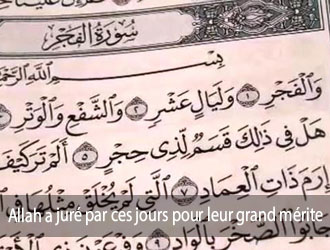 سُورَةُ الفَجْرِ
بِسْمِ اللَّهِ الرَّحْمَٰنِ
وَالْفَجْرِ ١ وَلَيَالٍ عَشْرٍ ٢ وَالشَّفْعِ وَالْوَتْرِ ٣
هَلْ فِي ذَٰلِكَ قَسَمٌ لِّذِي حِجْرٍ ٥ أَلَمْ تَرَ كَيْفَ
إِرَمَ ذَاتِ الْعِمَادِ ٧ الَّتِي لَمْ يُخْلَقْ مِثْلُهَا فِي
Allah a juré par ces jours pour leur grand mérite
جَابُوا الصَّخْرَ بِالْوَادِ ٩